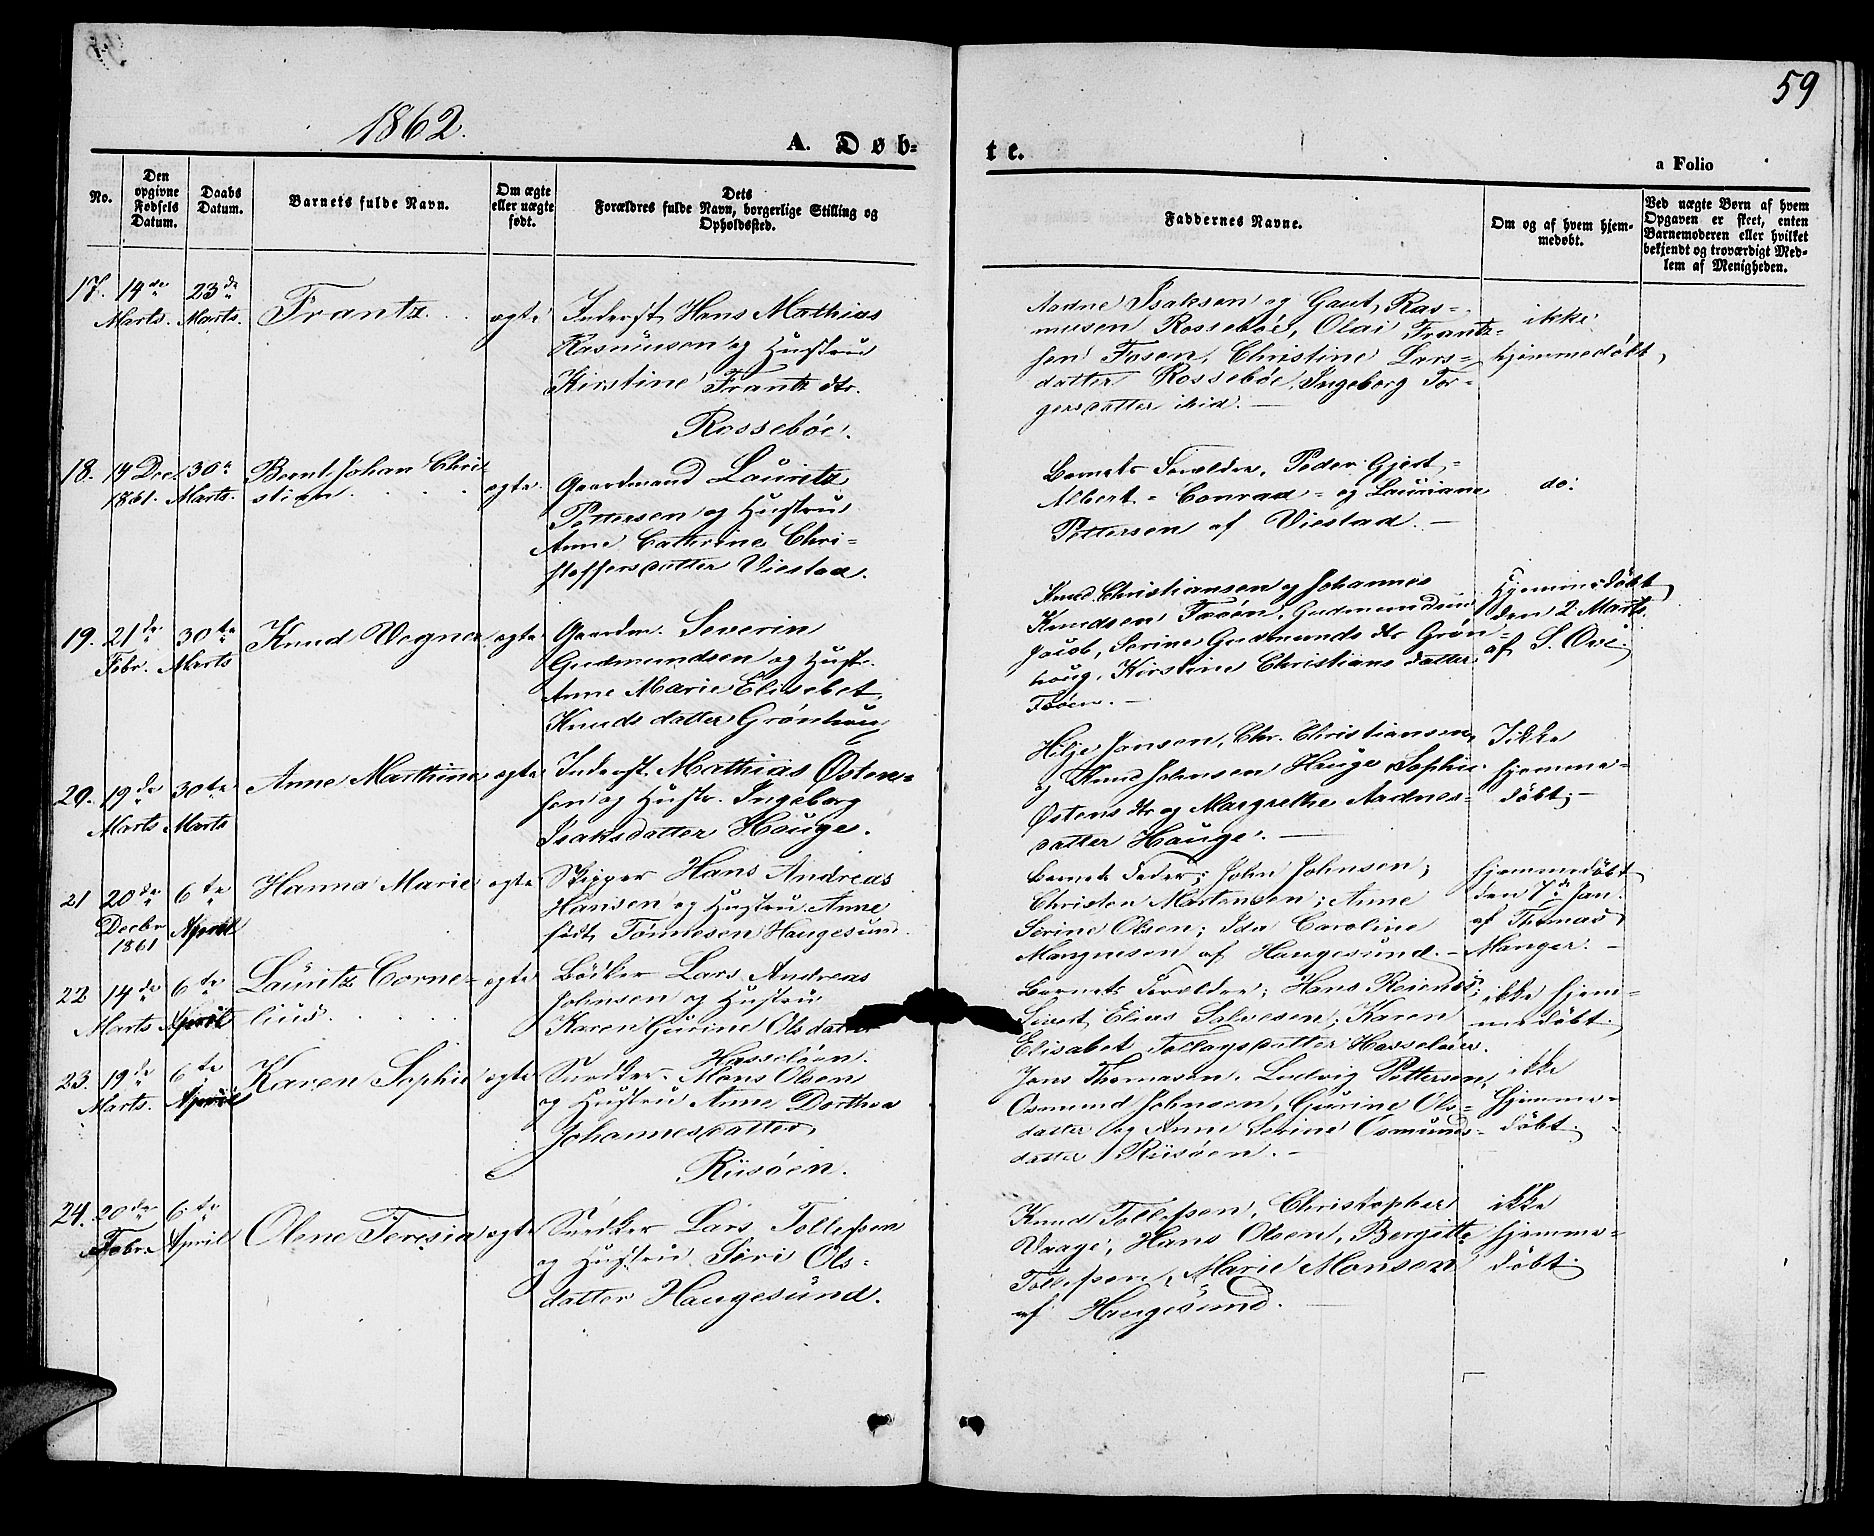 59
1862.
A. Døb-
te.
a Folio
No.
Den opgivne Fødsels Datum.
Daabs Datum.
Barnets fulde Navn.
Om ægte eller uægte født.
Dets Forældres fulde Navn, borgerlige Stilling og Opholdssted.
Faddernes Navne.
Om og af hvem hjemmedøbt.
Ved uægte Børn af hvem Opgaven er skeet, enten Barnemoderen eller hvilket bekjendt og troværdigt Medlem af Menigheden.
17.
19de Marts.
23de Marts.
Frantz
ægte
Inderst Hans Mathias
Rasmussen og Hustru
Kirstine Frantz dtr.
Rossebøe.
Aadne Isaksen og Gaut Ras-
musen Rossebøe, Olai Frantz-
sen Fosen, Christine Lars-
datter Rossebøe, Ingeborg Tor-
gersdatter ibid. —
ikke
hjemmedøbt
18.
Dec. 1861.
30te Marts.
Bernt Johan Chri-
stian
ægte
Gaardmand Lauritz
Pettersen og Hustru
Anne Cathrine Chri-
stoffersdatter Viestad.
Barnets Forældre, Peder Gjert-
Albert- Conrad- og Lauriane
Pettersen af Viestad. —
do:
19.
21de Febr.
30te Marts
Knud Wegner
ægte
Gaardm. Severin
Gudmundsen og Hustr.
Anne Marie Elisebet
Knudsdatter Grønhoug
Knud Christiansen og Johannes
Knudsen Frøen, Gudmund
Jacob, Serine Gudmunds dtr Grøn-
houg, Kirstine Christians datter
Frøen. —
Hjemmedøbt
den 2 Marts
af S. Ove.
20.
19de Marts
30te Marts
Anne Marthine
ægte
Inderst Mathias Østen-
sen og Hustr. Ingeborg
Isaksdatter Hauge.
Hilje Jansen, Chr. Christiansen,
og Knud Johnsen Hauge, Sophie
Østens dtr og Margrethe Aadnes-
datter Hauge. —
Ikke
hjemme-
døbt; —
21
20de Decbr 1861
6te April
Hanna Marie
ægte
Skipper Hans Andreas
Hansen og Hustru Anne
født Tønnesen Haugesund.
Barnets Fader; John Johnsen;
Christen Mortensen; Anne
Serine Olsen; Ida Caroline
Mangnesen af Haugesund. —
hjemmedøbt
den 7de Jan.
af Thomas
Manger. —
22
14de Marts
6te April
Lauritz Corne-
lius
ægte
Bødker Lars Andreas
Johnsen og Hustru
Karen Gurine Olsdatter
Hasseløen.
Barnets Forældre; Hans
Sivert Elias Salvesen; Karen
Elisabet Tollagsdatter Hasseløen.
ikke hjem-
medøbt.
23.
19de Marts.
6te April
Karen Sophie
ægte
Snedker Mons Olsen
og Hustru Anne Dorthea
Johannesdatter
Riisøen.
Jens Thomasen, Ludvig Pettersen,
Osmund Johnsen, Gurine Ols-
datter og Anne Serine Osmunds-
datter Riisøen. —
ikke
hjemme-
døbt.
24.
20de Febr.
6te April
Olene Teresia
ægte
Snedker Lars Tollefsen
og Hustru Siri Ols-
datter Haugesund.
Knud Tollefsen, Christopher
Vaage, Hans Olsen, Bergitte
Tollefsen, Marie Monsen
af Haugesund. —
ikke
hjemme-
døbt